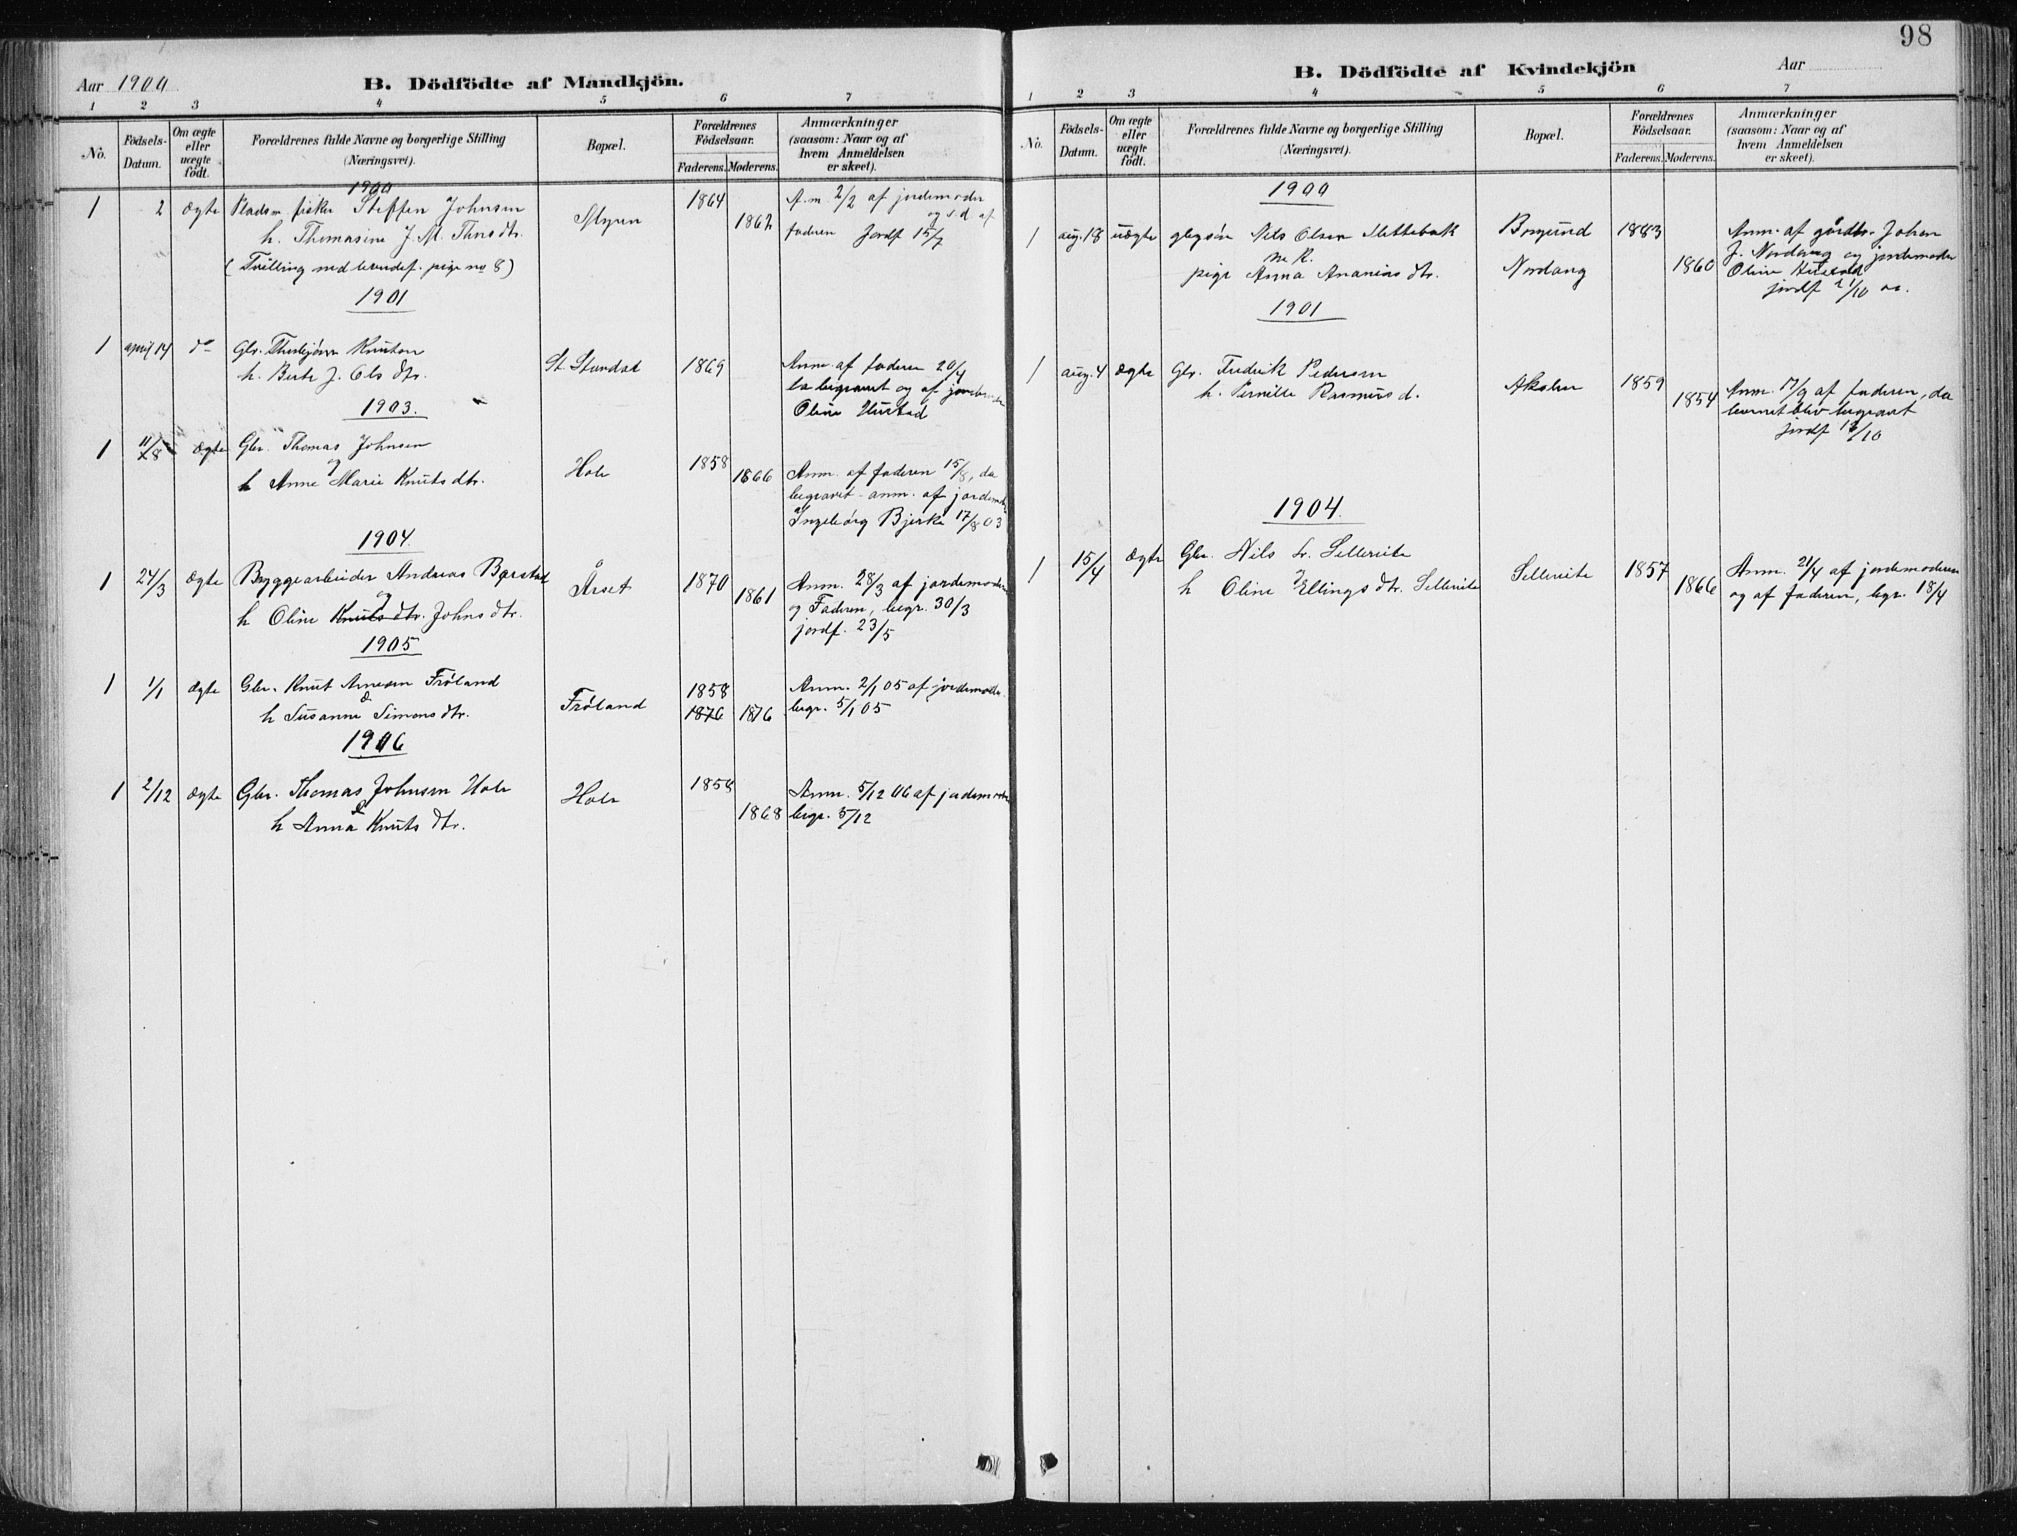 98
Aar 1900
B. Dödfödte af Mandkjön.
1 2 3 4 5 6 7
No.
Födsels-Datum.
Om ægte eller uægte födt.
Forældrenes fulde Navne og borgerlige Stilling
(Næringsvei).
Bopæl.
Forældrenes Födselsaar.
Faderens. Moderens.
Anmærkninger
(saasom: Naar og af
hvem Anmeldelsen
er skeet).
1900
1 2 ægte Pladsm. fisker Steffen Johnsen Myren 1864 1862
h. Thomasine J. M.
(Tvilling med levendef. pige no 8)
A.m. 2/2 af jordemoder
og s d af
faderen Jordf 15/7
1901
1 april 14 do Gbr. Thorbjørn Knutsen St. Standal 1869
h. Berte J. Ols dtr.
Anm. af faderen 20/4
da begravet og af jordemoder
Oline Hustad
1903.
1 11/8 ægte Gbr. Thomas Johnsen Hole 1858 1866
og
h Anne Marie Knuts dtr.
Anm. af faderen 15/8, da
begravet - anm. af jordemoder
Ingeborg Bjerke 17/8 03
1904
1 24/3 ægte Byggearbeider Andreas Børstad Årset 1870 1861
og
h Oline Knuts dtr. Johns dtr.
Anm. 28/3 af jordemoder
og Faderen, begr. 30/3
jordf. 23/5
1905
1 1/1 ægte Gbr. Knut Arnesen Frøland Frøland 1858
&
h Susanne Simons dtr. 1876 1876
Anm. 2/1 05 af jordemoder.
begr. 5/1 05
1906
1 2/12 ægte Gbr. Thomas Johnsen Hole Hole 1858 1868
&
h Anna Knuts dtr.
Anm. 5/12 06 af jordemoder
begr. 5/12
B. Dödfödte af Kvindekjön
Aar
1 2 3 4 5 6 7
No.
Födsels-Datum.
Om ægte eller uægte födt.
Forældrenes fulde Navne og borgerlige Stilling
(Næringsvei).
Bopæl.
Forældrenes Födselsaar.
Faderens. Moderens.
Anmærkninger
(saasom: Naar og af
hvem Anmeldelsen
er skeet).
1900
1 aug. 18 uægte Nils Olsen Borgund 1883
pige Anna Ananias dtr. Nordang 1860
Anm. af gårdbr. Johan
J. Nordang og jordemoder
Oline Hustad
jordf 21/10
1901
1 aug. 4 ægte Gbr. Fredrik Pedersen Akslen 1859 1854
h. Pernille Rasmus d.
Anm. 17/9 af faderen, da
barnet blev begravet
jordf 13/10
1904.
1 15/4 ægte Gbr. Nils Sr. Selleseite Selleseite 1857 1866
h Oline Ellings dtr. Selleseite
Anm. 21/4 af jordemoderen
og af faderen, begr. 18/4